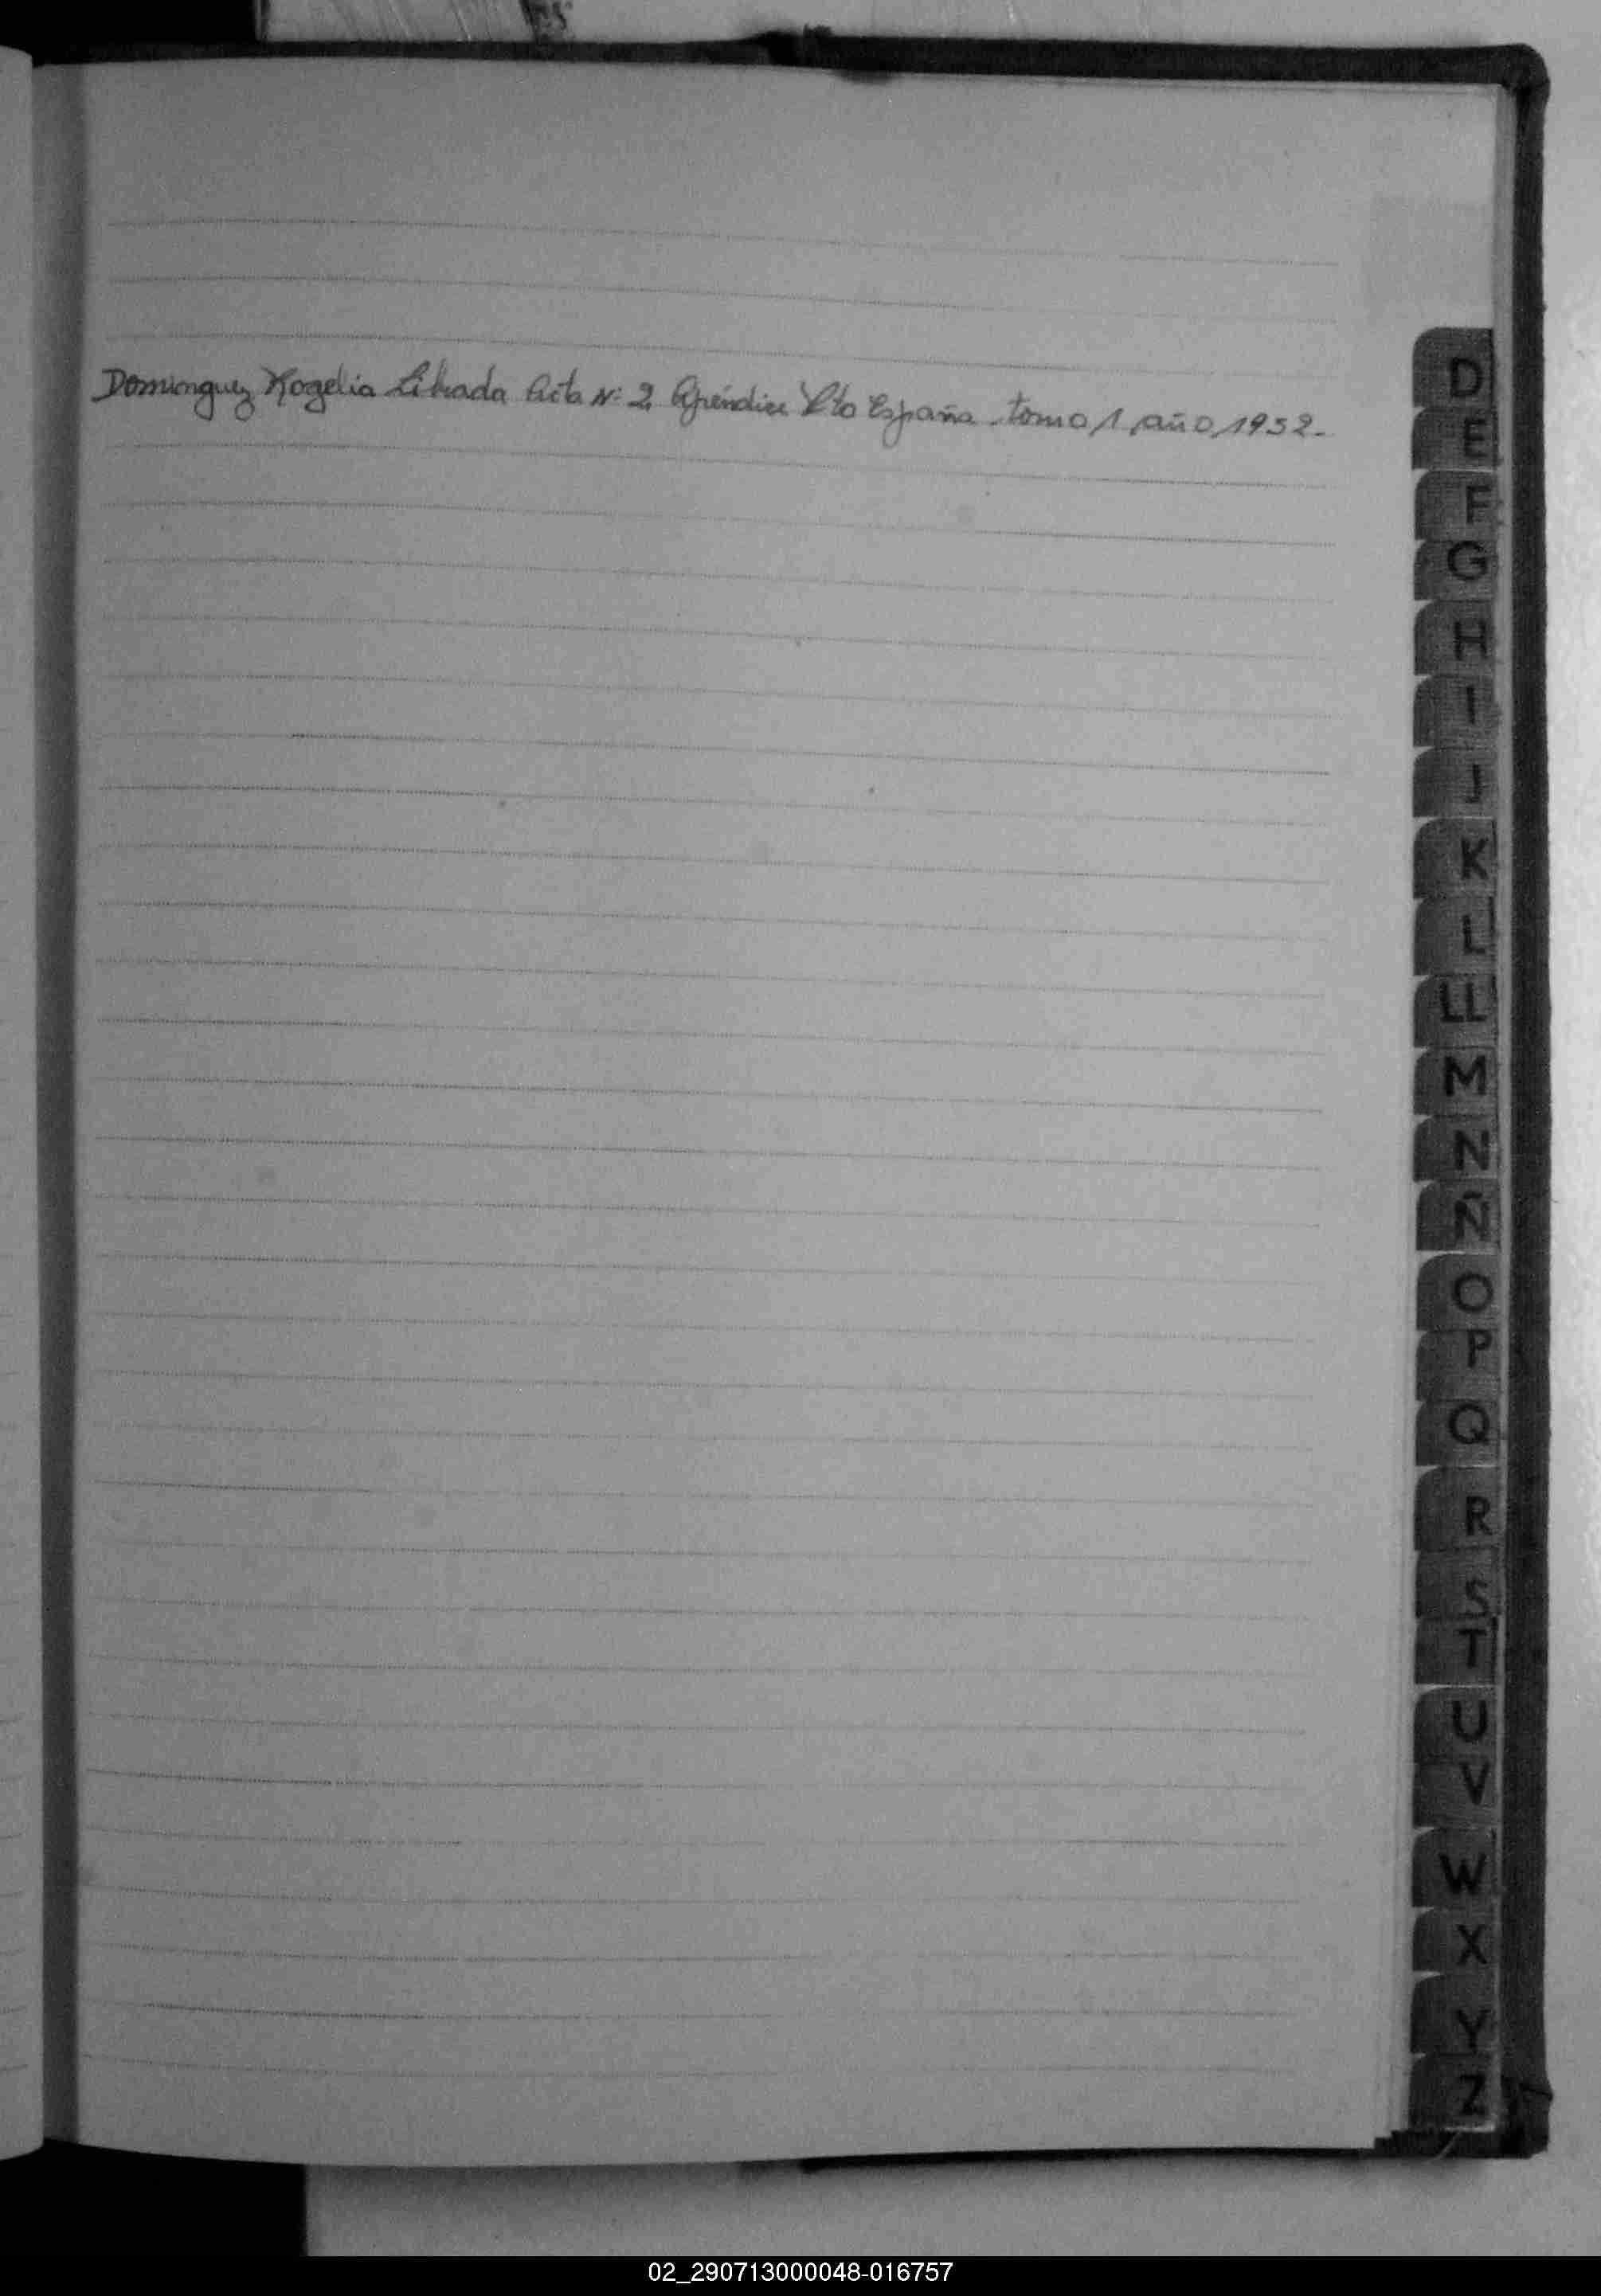 Dominguez Rogelia Librada Acta Nº 2 Apéndice Pto España tomo 1 año 1952.-
D
E
F
G
H
I
J
K
L
LL
M
N
Ñ
O
P
Q
R
S
T
U
V
W
X
Y
Z
02_290713000048-016757